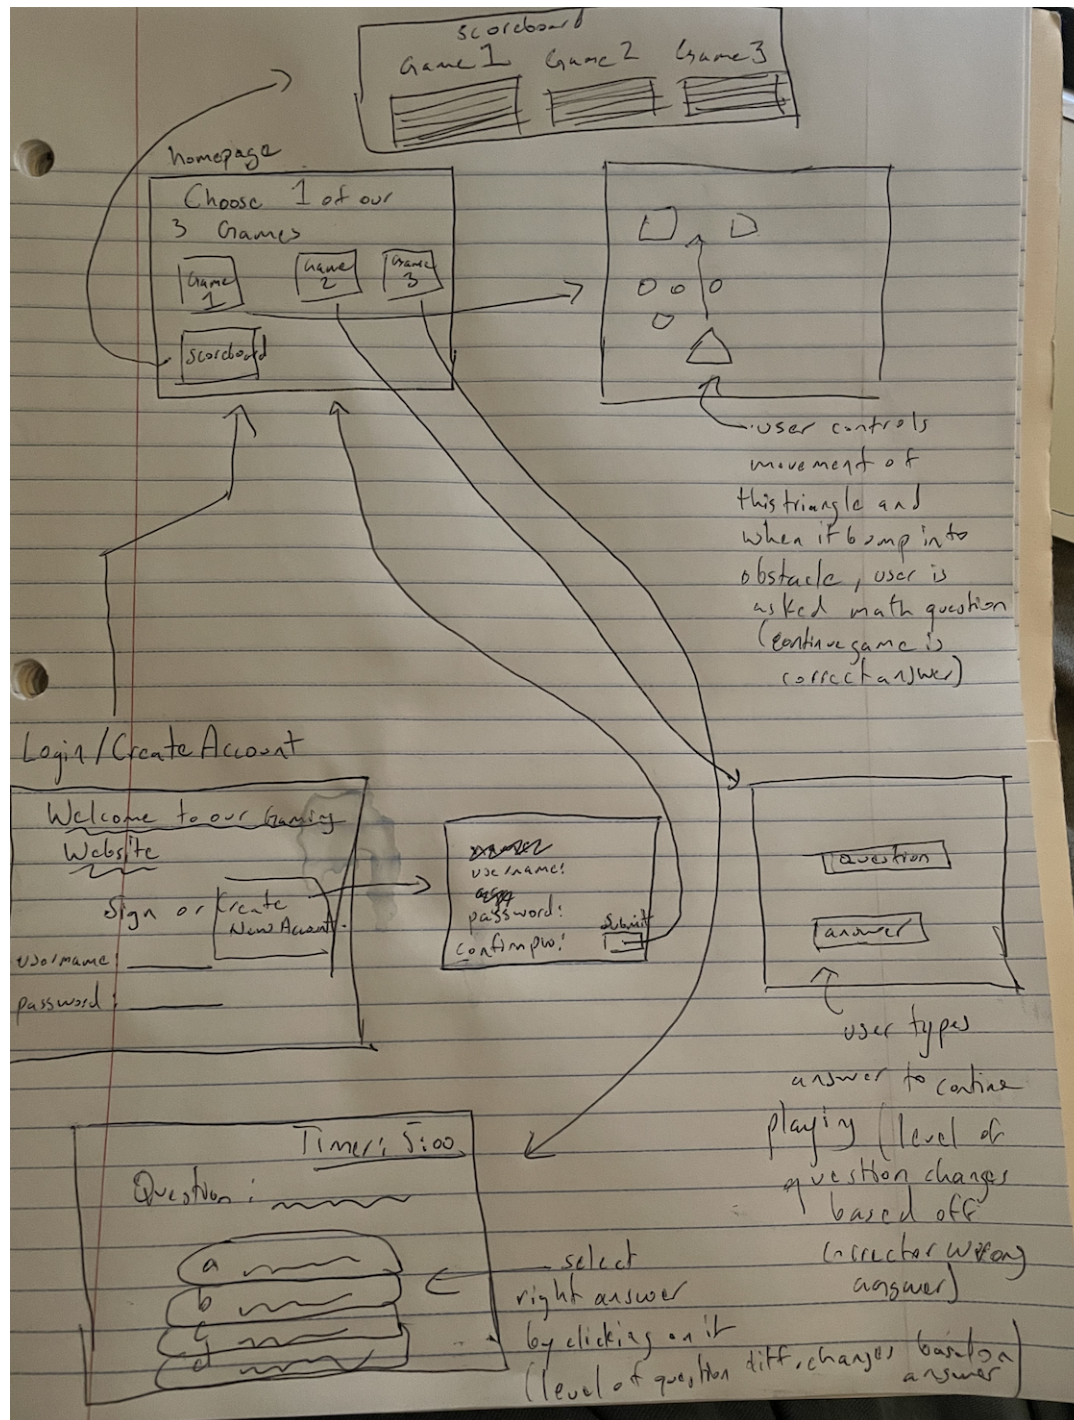 Scoreboard
Game 1 Game 2 Game 3
homepage
Choose 1 of our
3 Games
Game 1
Game 2
Game 3
scoreboard
user controls
movement of
this triangle and
when it bump into
obstacle, user is
asked math question
(continue game is
correct answer)
Login/Create Account
Welcome to our Gaming
Website
Sign or Create
New Account.
username:
password:
username:
password:
confirm pw:
Submit
question
answer
user types
answer to contine
playing (level of
question changes
based off
correct or wrong
answer)
Timer: 5:00
Question:
a
b
c
d
select
right answer
by clicking on it
(level of question diff. changes based on
answer)